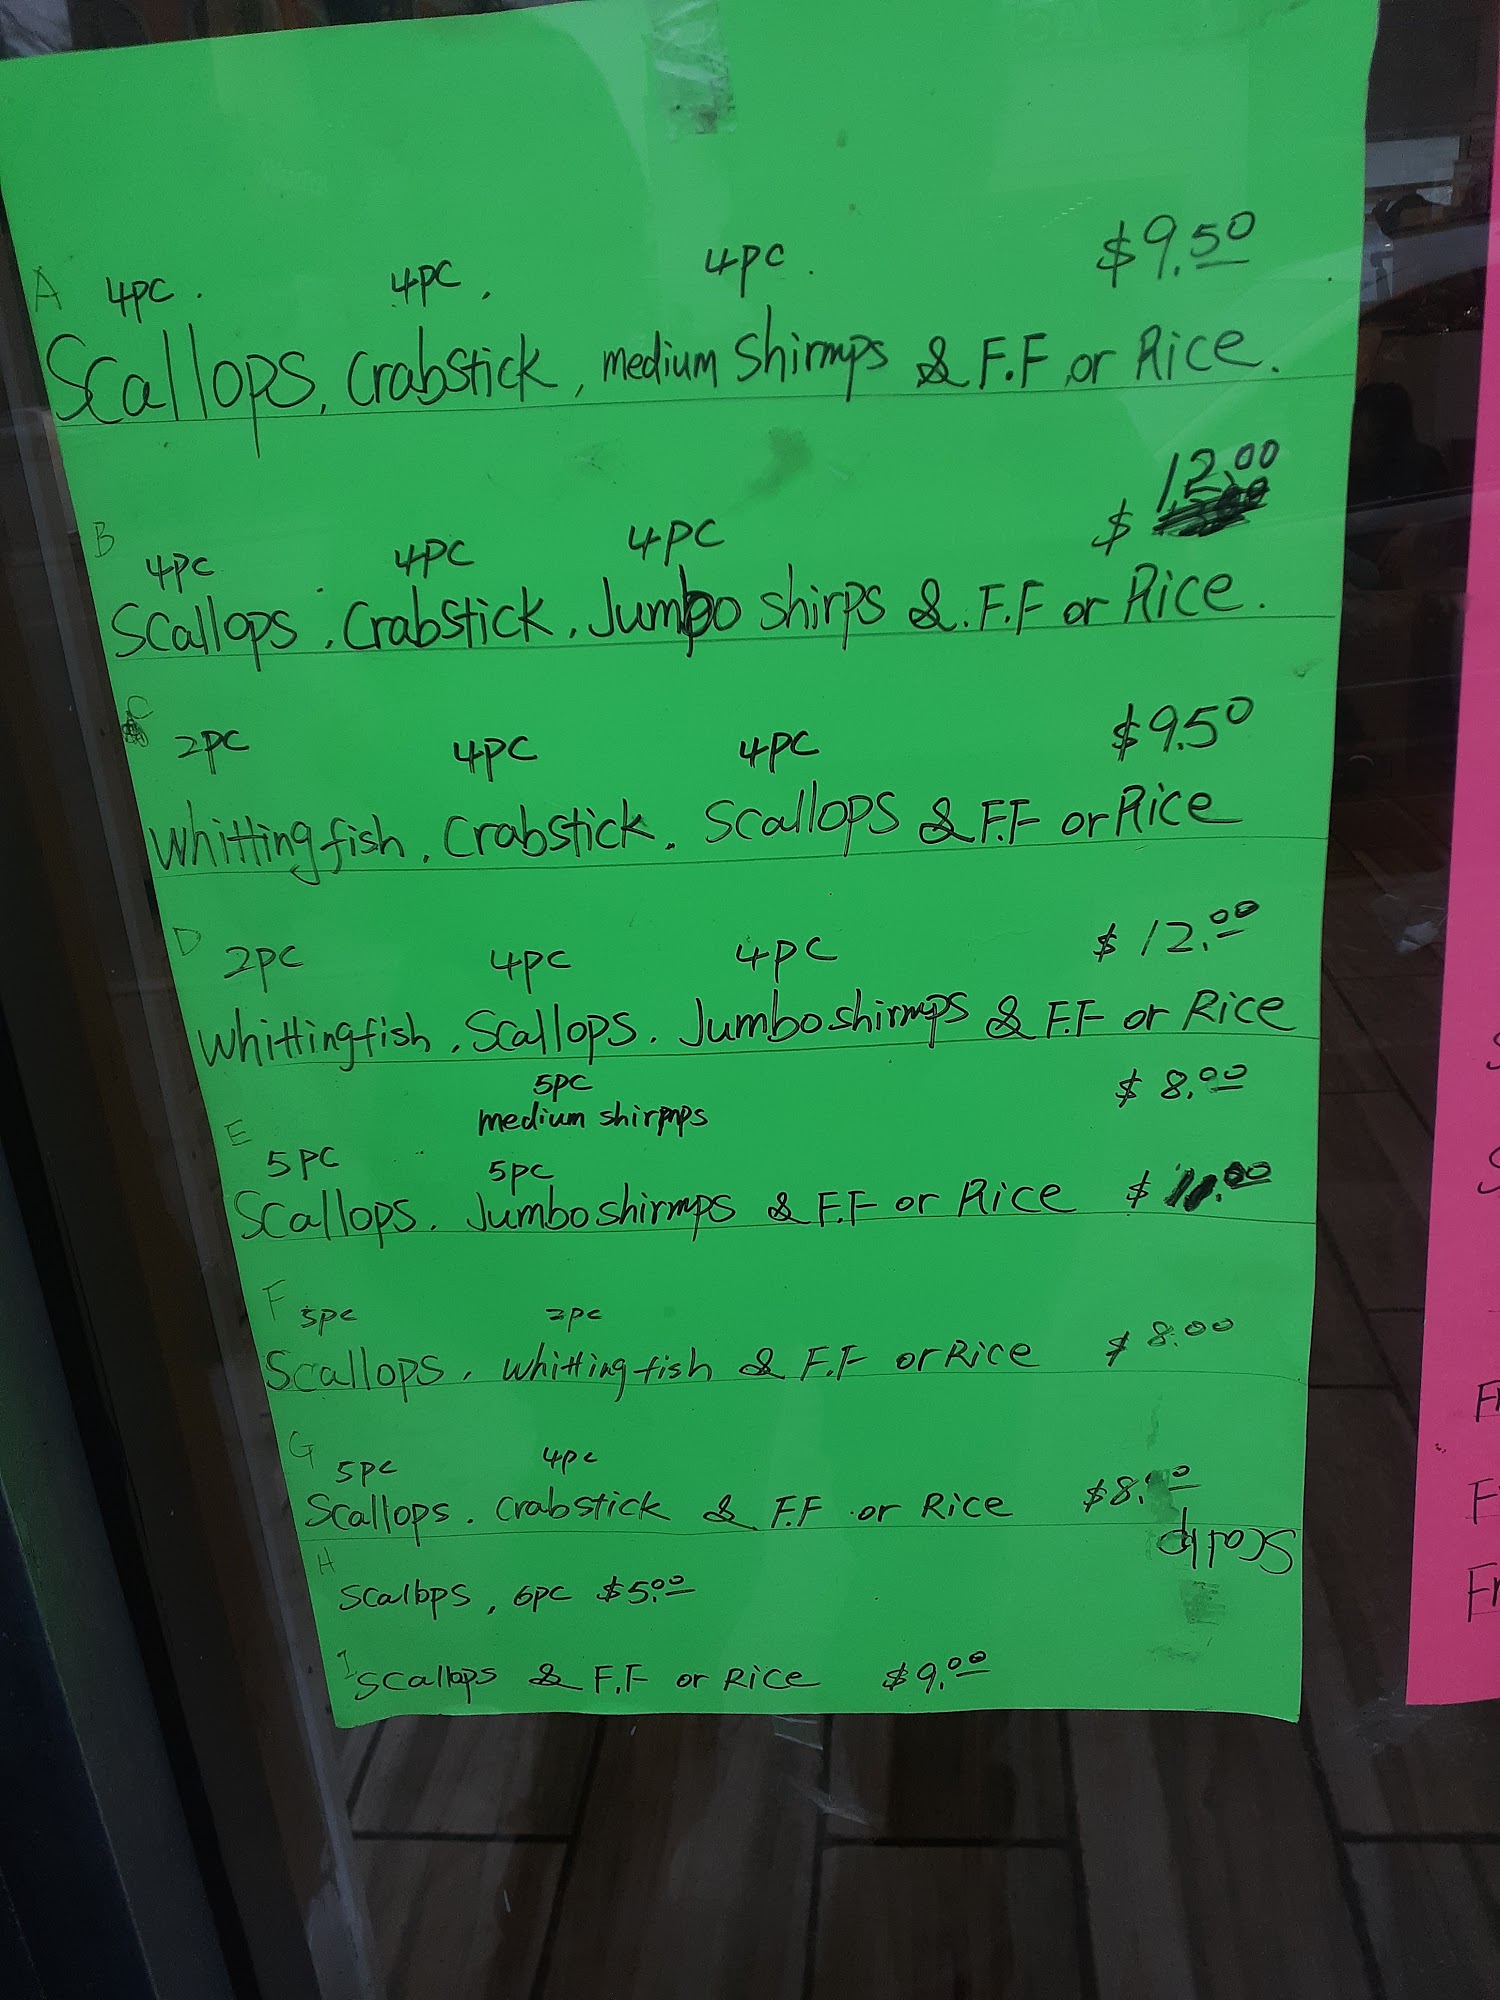 A 4pc. 4pc. 4pc. $9.50
Scallops, Crabstick, medium Shirmps & F.F or Rice.
B 4pc 4pc 4pc $ 12.00
Scallops, Crabstick, Jumbo shirps & F.F or Rice.
C 2pc 4pc 4pc $9.50
Whitting fish, Crabstick. Scallops & F.F or Rice
D 2pc 4pc 4pc $12.00
Whitting fish, Scallops. Jumbo shirmps & F.F or Rice
5pc $8.00
medium shirmps
E 5pc 5pc
Scallops. Jumbo shirmps & F.F or Rice $ 11.00
F 5pc 2pc
Scallops, Whitting fish & F.F or Rice $8.00
G 5pc 4pc
Scallops. Crabstick & F.F or Rice $8.00
H
Scallops, 6pc $5.00
I Scallops & F.F or Rice $9.00